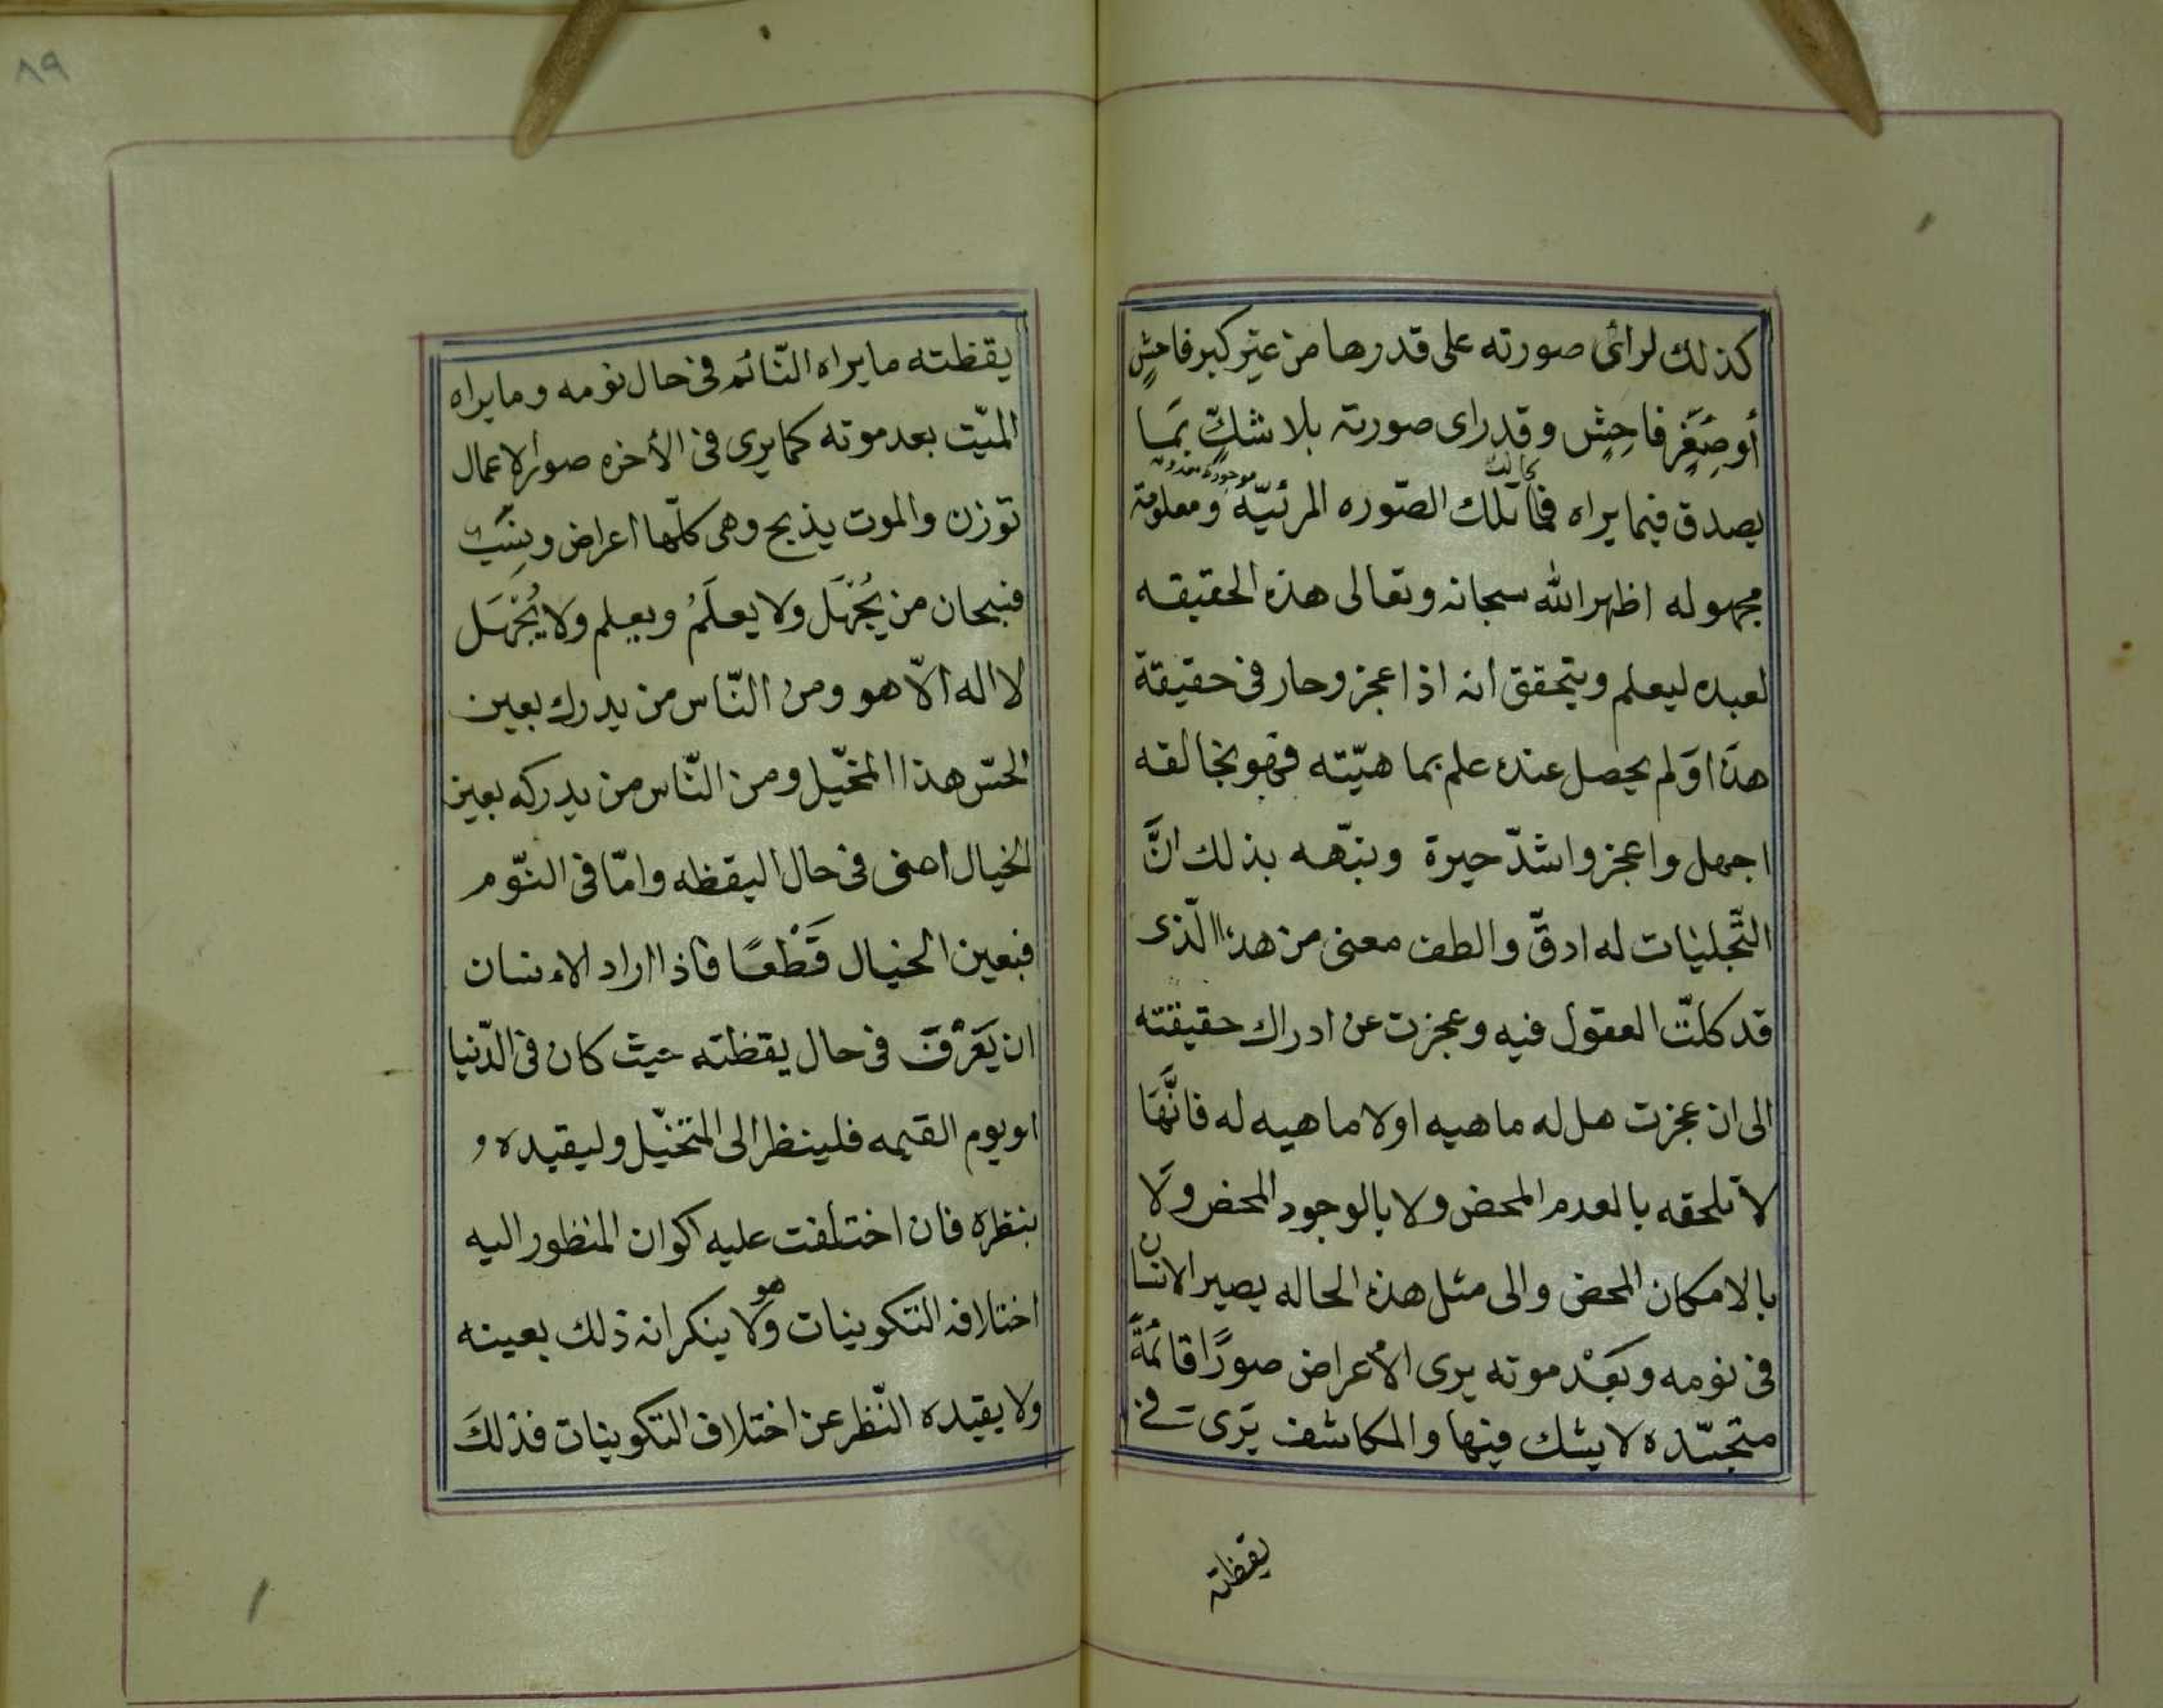 كذلك لرأى صورته على قدرها من غير كبر فاحش
أو صِغَرٍ فاحِشٍ وقد راى صورته بلا شكّ بما
يصدق فيما يراه فما تلك الصّوره المرئيّة ومعلومة
مجهوله اظهر الله سبحانه وتعالى هذه الحقيقه
لعبده ليعلم ويتحقق أنه اذا عجز وحار فى حقيقة
هذا ولم يحصل عنده علم بماهيّته فهو بخالقه
اجهل واعجز واشدّ حيرة ونبّهه بذلك انَّ
التّجليات له ادقّ والطف معنى من هذا الّذى
قد كلّت العقول فيه وعجزت عن ادراك حقيقته
الى ان عجزت هل له ماهيه اولا ماهيه له فانَّها
لا تلحقه بالعدم المحض ولا بالوجود المحض ولا
بالامكان المحض والى مثل هذه الحاله يصير الانسان
فى نومه وبَعْد موته يرى الأعراض صورًا قائمةً
متجسّده لا يشك فيها والمكاشف يَرى فى
يقظته
٨٩
يقظته ما يراه النّائم فى حال نومه وما يراه
الميّت بعد موته كما يرى فى الأخره صور الاعمال
توزن والموت يذبح وهى كلّها اعراض ونِسَب
فسبحان من يُجْهَل ولا يعلَمُ ويعلم ولا يُجْهَل
لا اله الّا هو ومن النّاس من يدرك بعين
الحسّ هذا المخيّل ومن النّاس من يدركه بعين
الخيال اعنى فى حال اليقظه وامّا فى النّوم
فبعين الخيال قَطْعًا فاذا اراد الاءنسان
ان يَعْرِفَ فى حال يقظته حيث كان فى الدّنيا
او يوم القيمه فلينظر الى المتخيّل وليقيده و
بنظره فان اختلفت عليه اكوان المنظور اليه
اختلافه التكوينات وهو لا ينكر انه ذلك بعينه
ولا يقيده النّظر عن اختلاف التكوينات فذلكَ